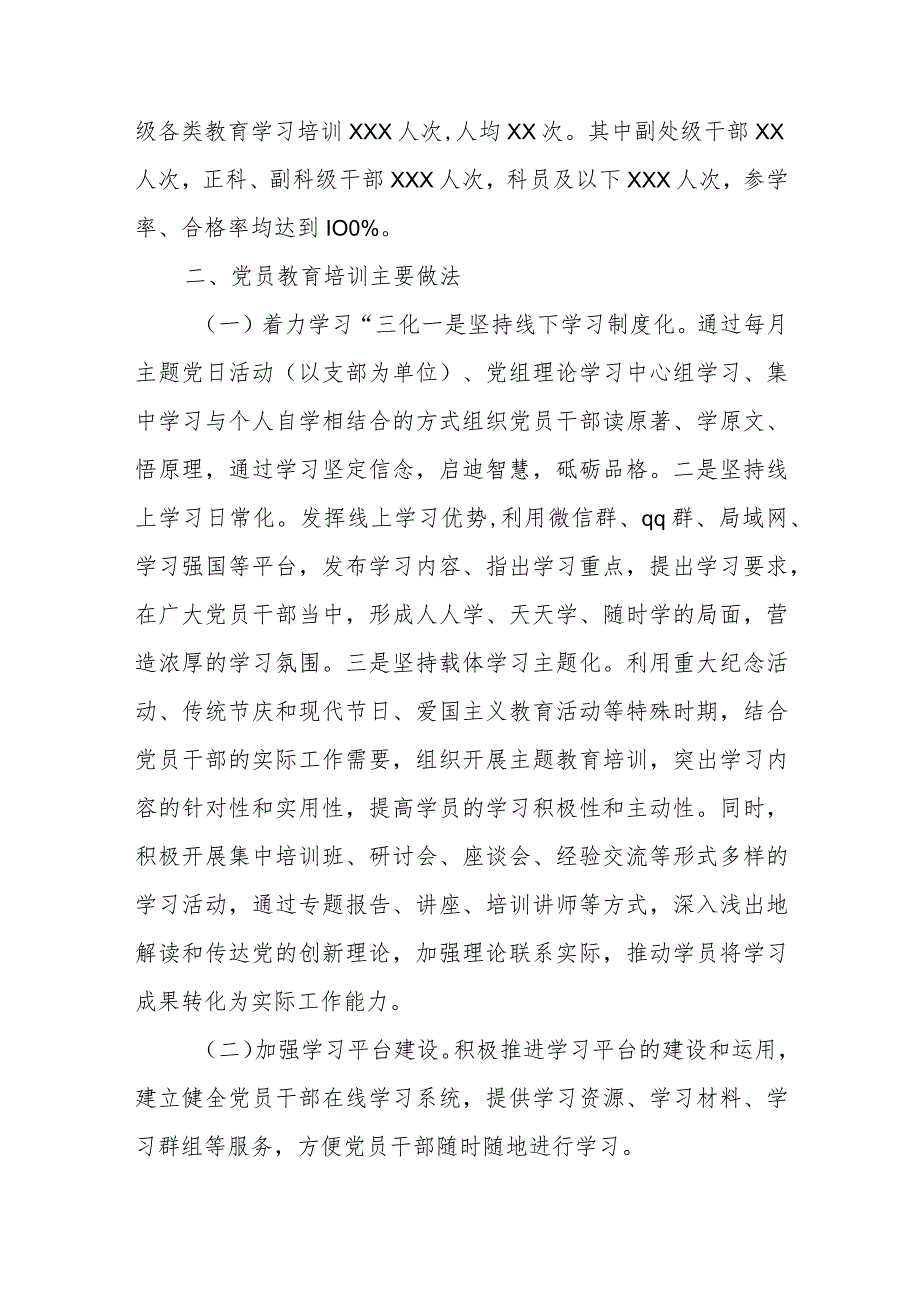 级各类教育学习培训 XXX 人次,人均 XX 次。其中副处级干部 XX
人次，正科、副科级干部 XXX 人次，科员及以下 XXX 人次，参学
率、合格率均达到 IO0%。
二、党员教育培训主要做法
（一）着力学习“三化一是坚持线下学习制度化。通过每月
主题党日活动（以支部为单位）、党组理论学习中心组学习、集
中学习与个人自学相结合的方式组织党员干部读原著、学原文、
悟原理，通过学习坚定信念，启迪智慧，砥砺品格。二是坚持线
上学习日常化。发挥线上学习优势,利用微信群、qq 群、局域网、
学习强国等平台，发布学习内容、指出学习重点，提出学习要求，
在广大党员干部当中，形成人人学、天天学、随时学的局面，营
造浓厚的学习氛围。三是坚持载体学习主题化。利用重大纪念活
动、传统节庆和现代节日、爱国主义教育活动等特殊时期，结合
党员干部的实际工作需要，组织开展主题教育培训，突出学习内
容的针对性和实用性，提高学员的学习积极性和主动性。同时，
积极开展集中培训班、研讨会、座谈会、经验交流等形式多样的
学习活动，通过专题报告、讲座、培训讲师等方式，深入浅出地
解读和传达党的创新理论，加强理论联系实际，推动学员将学习
成果转化为实际工作能力。
（二）加强学习平台建设。积极推进学习平台的建设和运用，
建立健全党员干部在线学习系统，提供学习资源、学习材料、学
习群组等服务，方便党员干部随时随地进行学习。